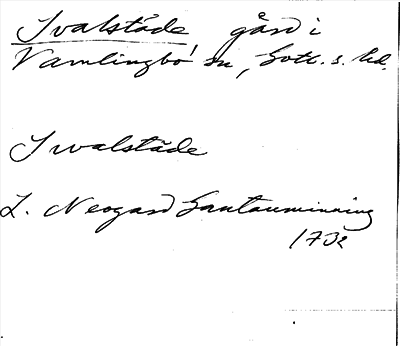 Ivalståde gård i
Vamlingbo sn, Gotl. s. hd.
Ivalståde
L. Neogard Gautauminning
1732